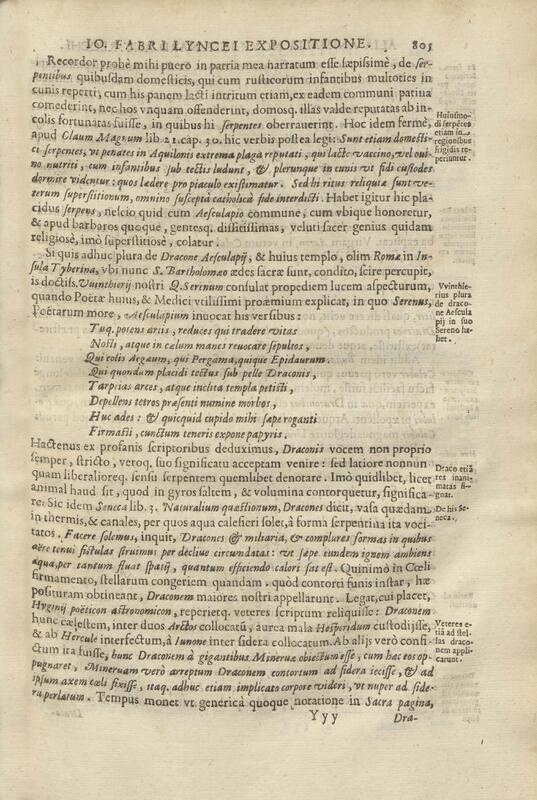 IO. FABRI LYNCEI EXPOSITIONE. 805
Recordor probè mihi puero in patria mea narratum esse sæpissimè, de ser-
pentibus quibusdam domesticis, qui cum rusticorum infantibus multoties in
cunis reperti, cum his panem lacti intritum etiam, ex eadem communi patina
comederint, nec hos vnquam offenderint, domosq. illas valde reputatas ab in-
colis fortunatas fuisse, in quibus hi serpentes oberrauerint. Hoc idem fermè,
apud Olaum Magnum lib. 21. cap. 30. hic verbis postea legi: Sunt etiam domesti-
ci serpentes, vt penates in Aquilonis extrema plaga reputati, qui lacte vaccino, vel oui-
no nutriti, cum infantibus sub tectis ludunt, & plerunque in cunis vt fidi custodes
dormire videntur: quos lædere pro piaculo existimatur. Sed hi ritus reliquiæ sunt ve-
terum superstitionum, omnino susceptâ catholicâ fide interdicti. Habet igitur hic pla-
cidus serpens, nescio quid cum Aesculapio commune, cum vbique honoretur,
& apud barbaros quoque, gentesq. dissitissimas, veluti sacer genius quidam
religiosè, imò superstitiosè, colatur.
Huiusmo-
di serpētes
etiam in
regionibus
frigidis re-
periuntur.
Si quis adhuc plura de Dracone Aesculapij, & huius templo, olim Romæ in In-
sula Tyberina, vbi nunc S. Bartholomæo ædes sacræ sunt, condito, scire percupit,
is doctiss. Vuintherij nostri Q. Serenum consulat propediem lucem aspecturum,
quando Poëtæ huius, & Medici vtilissimi proæmium explicat, in quo Serenus,
Poëtarum more, Aesculapium inuocat his versibus:
Vvinthe-
rius plura
de draco-
ne Aescula
pij in suo
Sereno ha-
bet.
Tuq. potens artis, reduces qui tradere vitas
Nosti, atque in cælum manes reuocare sepultos,
Qui colis Aegæum, qui Pergama, quique Epidaurum.
Qui quondam placidi tectus sub pelle Draconis,
Tarpeias arces, atque inclita templa petisti,
Depellens tetros præsenti numine morbos,
Huc ades: & quicquid cupido mihi sæpe roganti
Firmasti, cunctum teneris expone papyris.
Hactenus ex profanis scriptoribus deduximus, Draconis vocem non proprio
semper, stricto, veroq. suo significatu acceptam venire: sed latiore nonnun
quam liberalioreq. sensu serpentem quemlibet denotare. Imò quidlibet, licet
animal haud sit, quod in gyros saltem, & volumina contorquetur, significa-
re. Sic idem Seneca lib. 3. Naturalium quæstionum, Dracones dicit, vasa quædam
in thermis, & canales, per quos aqua calefieri solet, à forma serpentina ita voci-
tatos. Facere solemus, inquit, Dracones & miliaria, & complures formas in quibus
aëre tenui fistulas struimus per decliue circundatas: vt sæpe eundem ignem ambiens
aqua, per tantum fluat spatij, quantum efficiendo calori sat est. Quinimò in Cœli
firmamento, stellarum congeriem quandam, quòd contorti funis instar, hæ
posituram obtineant, Draconem maiores nostri appellarunt. Legat, cui placet,
Hyginij poëticon astronomicon, reperietq. veteres scriptum reliquisse: Draconem
hunc cælestem, inter duos Arctos collocatū, aurea mala Hesperidum custodijsse,
& ab Hercule interfectum, à Iunone inter sidera collocatum. Ab alijs verò confi-
ctum ita fuisse, hunc Draconem à gigantibus Mineruæ obiectum esse, cum hac eos op-
pugnaret, Mineruam verò arreptum Draconem contortum ad sidera iecisse, & ad
ipsum axem cœli fixisse, itaq. adhuc etiam implicato corpore videri, vt nuper ad side-
ra perlatum. Tempus monet vt genericâ quoque notatione in Sacra pagina,
Draco etiā
licet res
inani-
matas si-
gnat.
De his Se-
neca.
Veteres e-
tiā ad stel-
las draco-
nem appli-
carunt.
Yyy Dra-